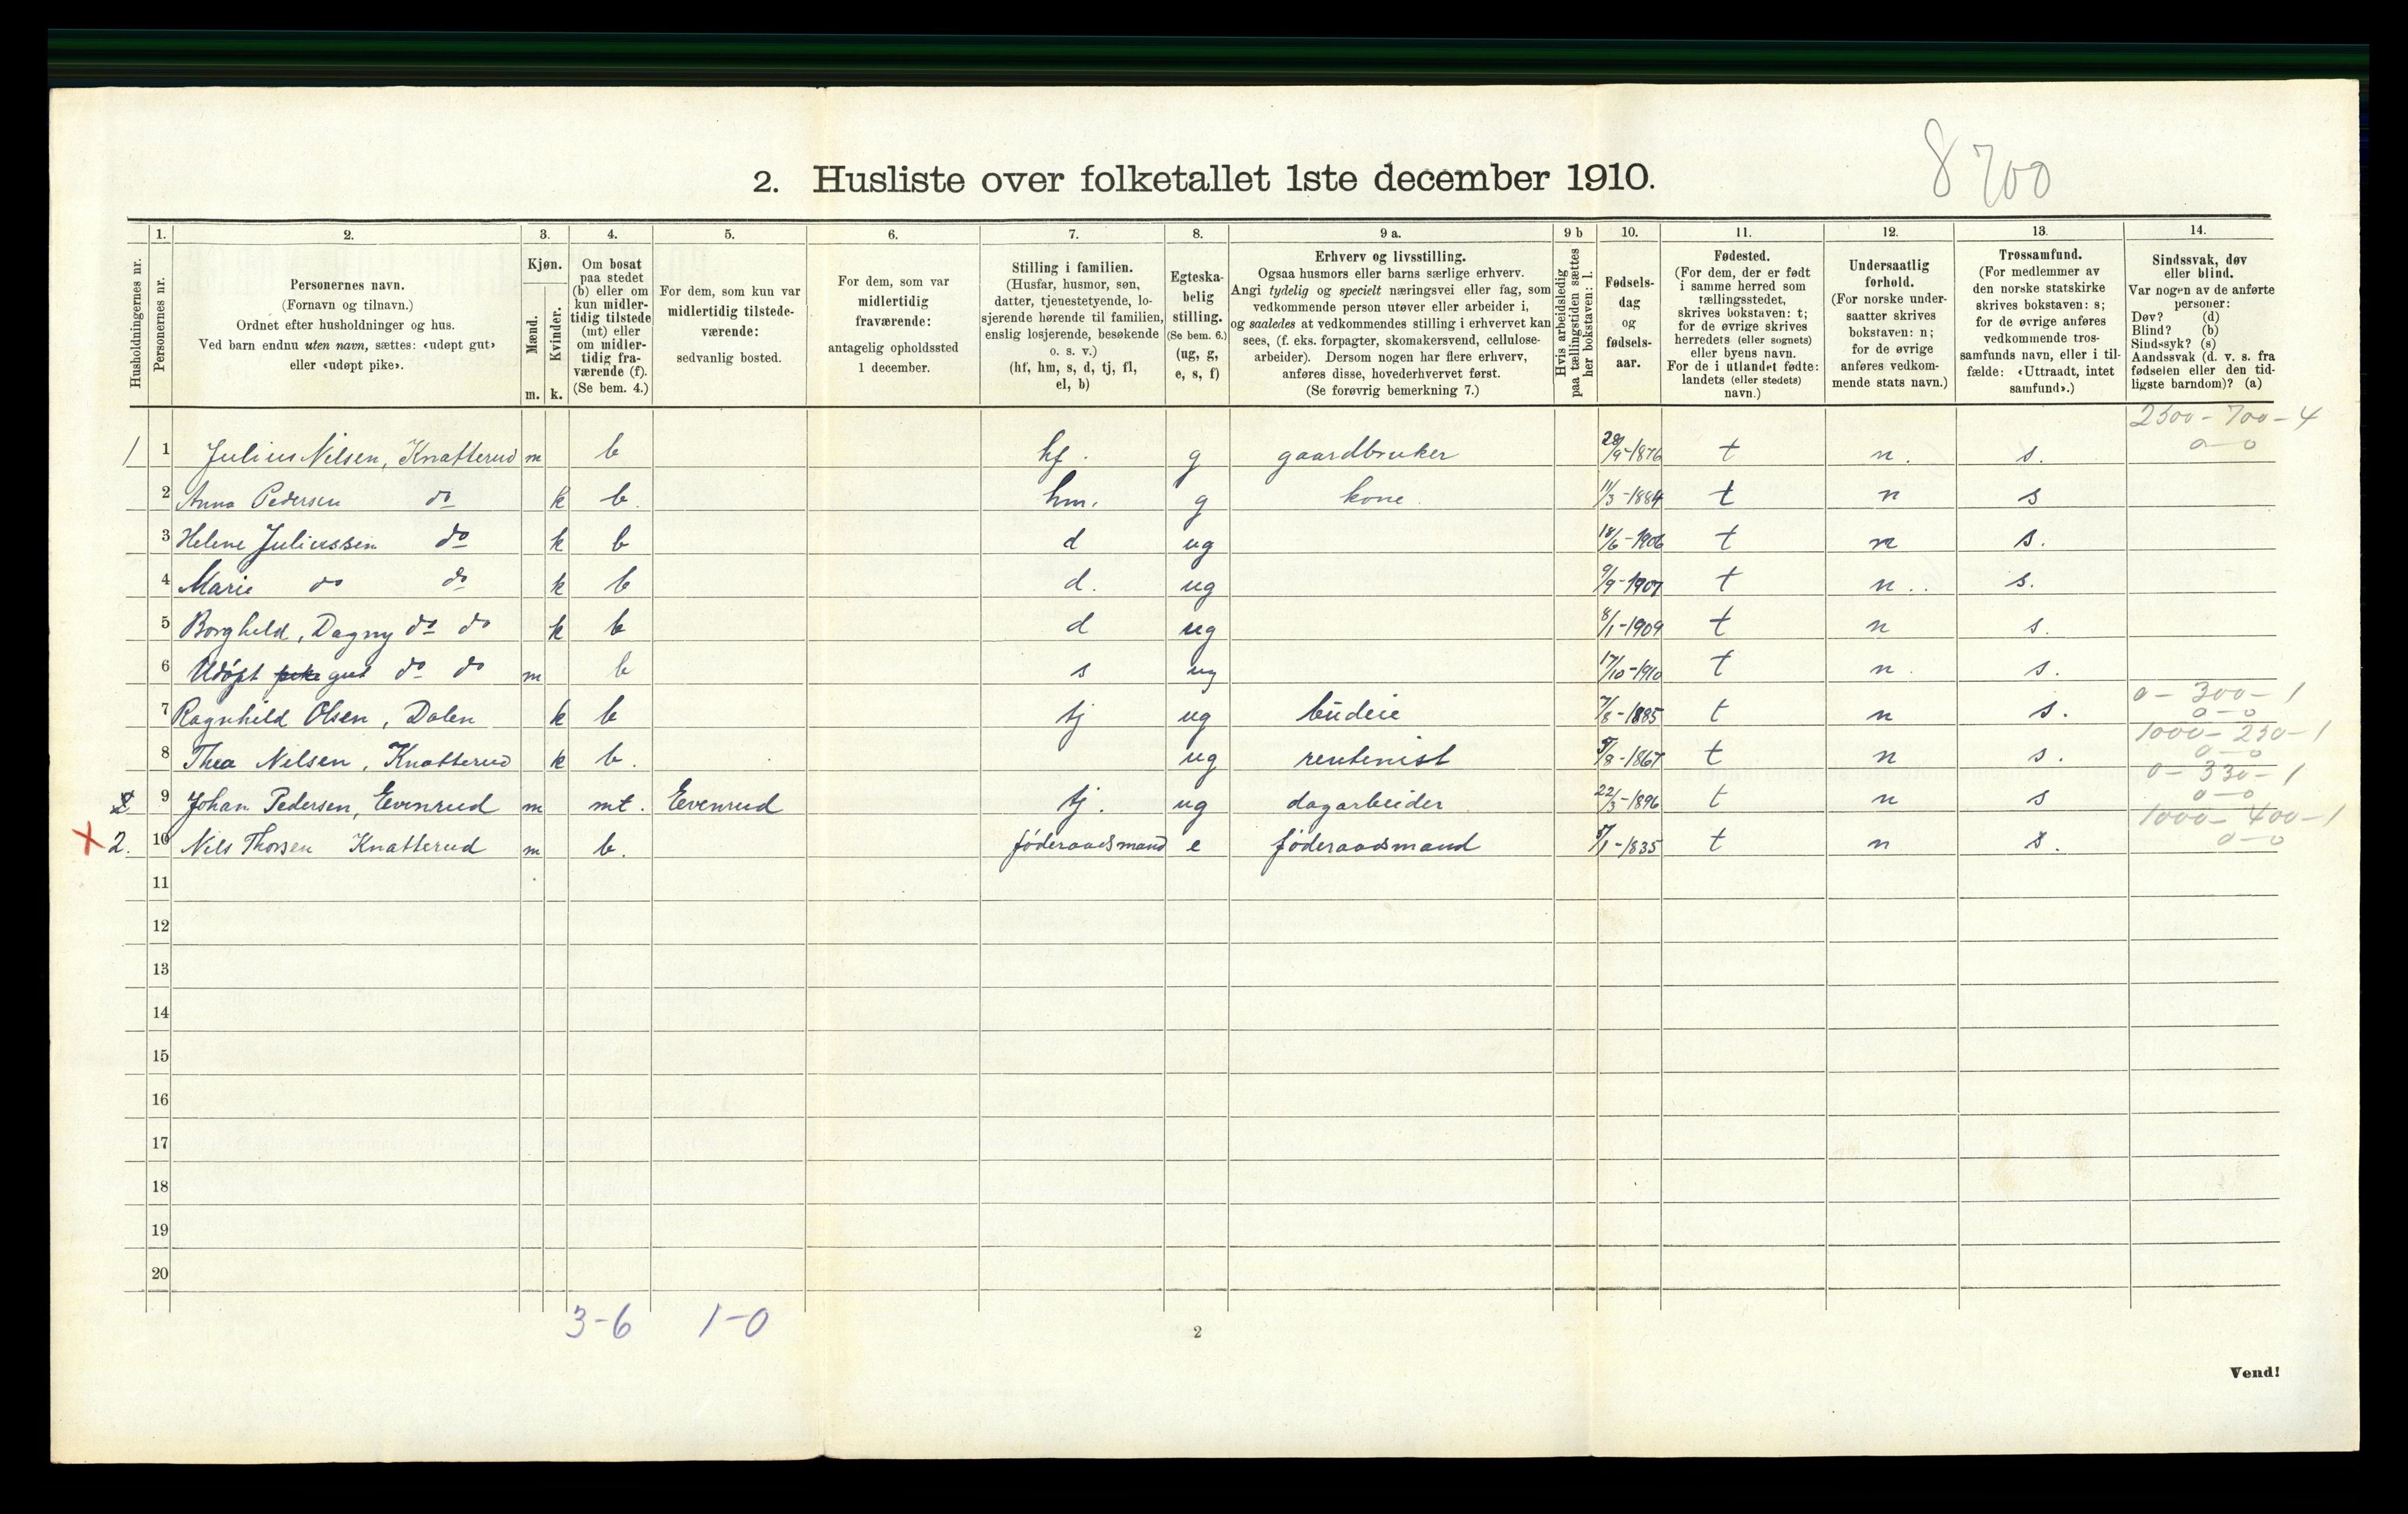 8700
2. Husliste over folketallet 1ste december 1910.
1. 2. 3. 4. 5. 6. 7. 8. 9 a. 9 b 10. 11. 12. 13. 14.
Husholdningernes nr.
Personernes nr.
Personernes navn.
(Fornavn og tilnavn.)
Ordnet efter husholdninger og hus.
Ved barn endnu uten navn, sættes: «udøpt gut»
eller «udøpt pike».
Kjøn.
Mænd.
Kvinder.
m. k.
Om bosat
paa stedet
(b) eller om
kun midler-
tidig tilstede
(mt) eller
om midler-
tidig fra-
værende (f).
(Se bem. 4.)
For dem, som kun var
midlertidig tilstede-
værende:
sedvanlig bosted.
For dem, som var
midlertidig
fraværende:
antagelig opholdssted
1 december.
Stilling i familien.
(Husfar, husmor, søn,
datter, tjenestetyende, lo-
sjerende hørende til familien,
enslig losjerende, besøkende
o. s. v.)
(hf, hm, s, d, tj, fl,
el, b)
Egteska-
belig
stilling.
(Se bem. 6.)
(ug, g,
e, s, f)
Erhverv og livsstilling.
Ogsaa husmors eller barns særlige erhverv.
Angi tydelig og specielt næringsvei eller fag, som
vedkommende person utøver eller arbeider i,
og saaledes at vedkommendes stilling i erhvervet kan
sees, (f. eks. forpagter, skomakersvend, cellulose-
arbeider). Dersom nogen har flere erhverv,
anføres disse, hovederhvervet først.
(Se forøvrig bemerkning 7.)
Hvis arbeidsledig
paa tællingstiden sættes
her bokstaven: l.
Fødsels-
dag
og
fødsels-
aar.
Fødested.
(For dem, der er født
i samme herred som
tællingsstedet,
skrives bokstaven: t;
for de øvrige skrives
herredets (eller sognets)
eller byens navn.
For de i utlandet fødte:
landets (eller stedets)
navn.)
Undersaatlig
forhold.
(For norske under-
saatter skrives
bokstaven: n;
for de øvrige
anføres vedkom-
mende stats navn.)
Trossamfund.
(For medlemmer av
den norske statskirke
skrives bokstaven: s;
for de øvrige anføres
vedkommende tros-
samfunds navn, eller i til-
fælde: «Uttraadt, intet
samfund».)
Sindssvak, døv
eller blind.
Var nogen av de anførte
personer:
Døv? (d)
Blind? (b)
Sindssyk? (s)
Aandssvak (d. v. s. fra
fødselen eller den tid-
ligste barndom)? (a)
2500-700-4
0-0
1 1 Julius Nilsen, Knatterud m b hf. g gaardbruker 28/9-1876 t n. s.
2 Anna Pedersen do k b. hm. g kone. 11/3-1884 t n s
3 Helene Juliussen do k b d ug 18/6-1906 t n s.
4 Marie do do k b d. ug 9/9-1907 t n.. s.
5 Borghild, Dagny do do k b d ug 8/1-1909 t n s.
6 Udøpt pike gut do do m b s ug 17/10-1910 t n. s.
0-300-1
7 Ragnhild Olsen, Dalen k b tj ug budeie 7/8-1885 t n s. 0-0
1000-250-1
8 Thea Nilsen, Knatterud k b. ug rentenist 5/8-1867 t n s. 0-0
0-330-1
2 9 Johan Pedersen, Evenrud m mt. Evenrud tj. ug dagarbeider 22/3-1896 t n s 0-0
1000-400-1
x 2. 10 Nils Thorsen Knatterud m b. føderaadsmand e føderaadsmand 5/1-1835 t n s. 0-0
11
12
13
14
15
16
17
18
19
20
3-6 1-0
2
Vend!